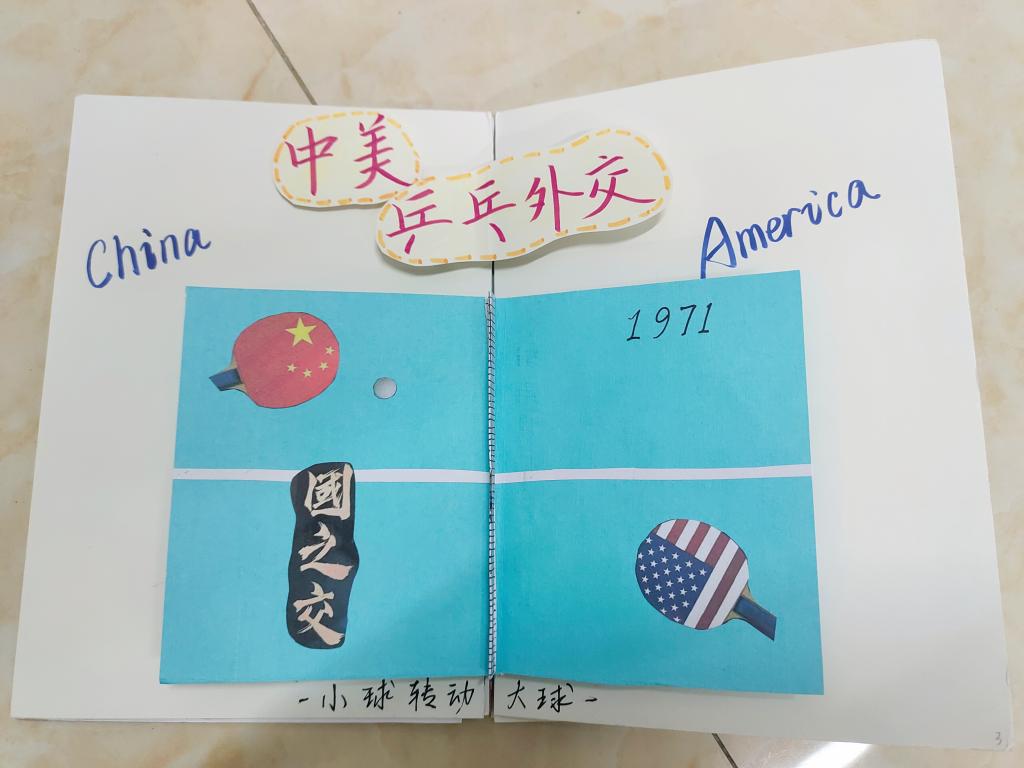 中美
乒乓外交
China
America
1971
國之交
-小球转动大球-
3